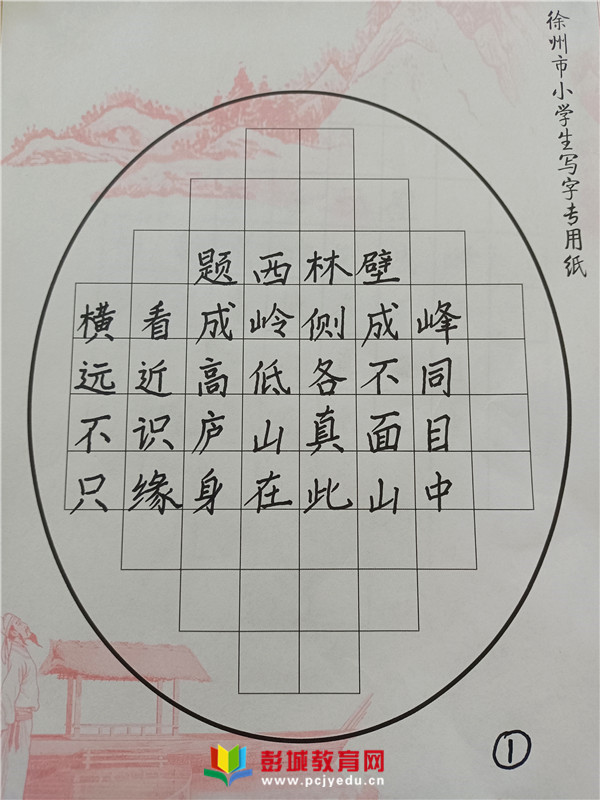 徐州市小学生写字专用纸
题西林壁
横看成岭侧成峰
远近高低各不同
不识庐山真面目
只缘身在此山中
①
彭城教育网
www.pcjyedu.cn